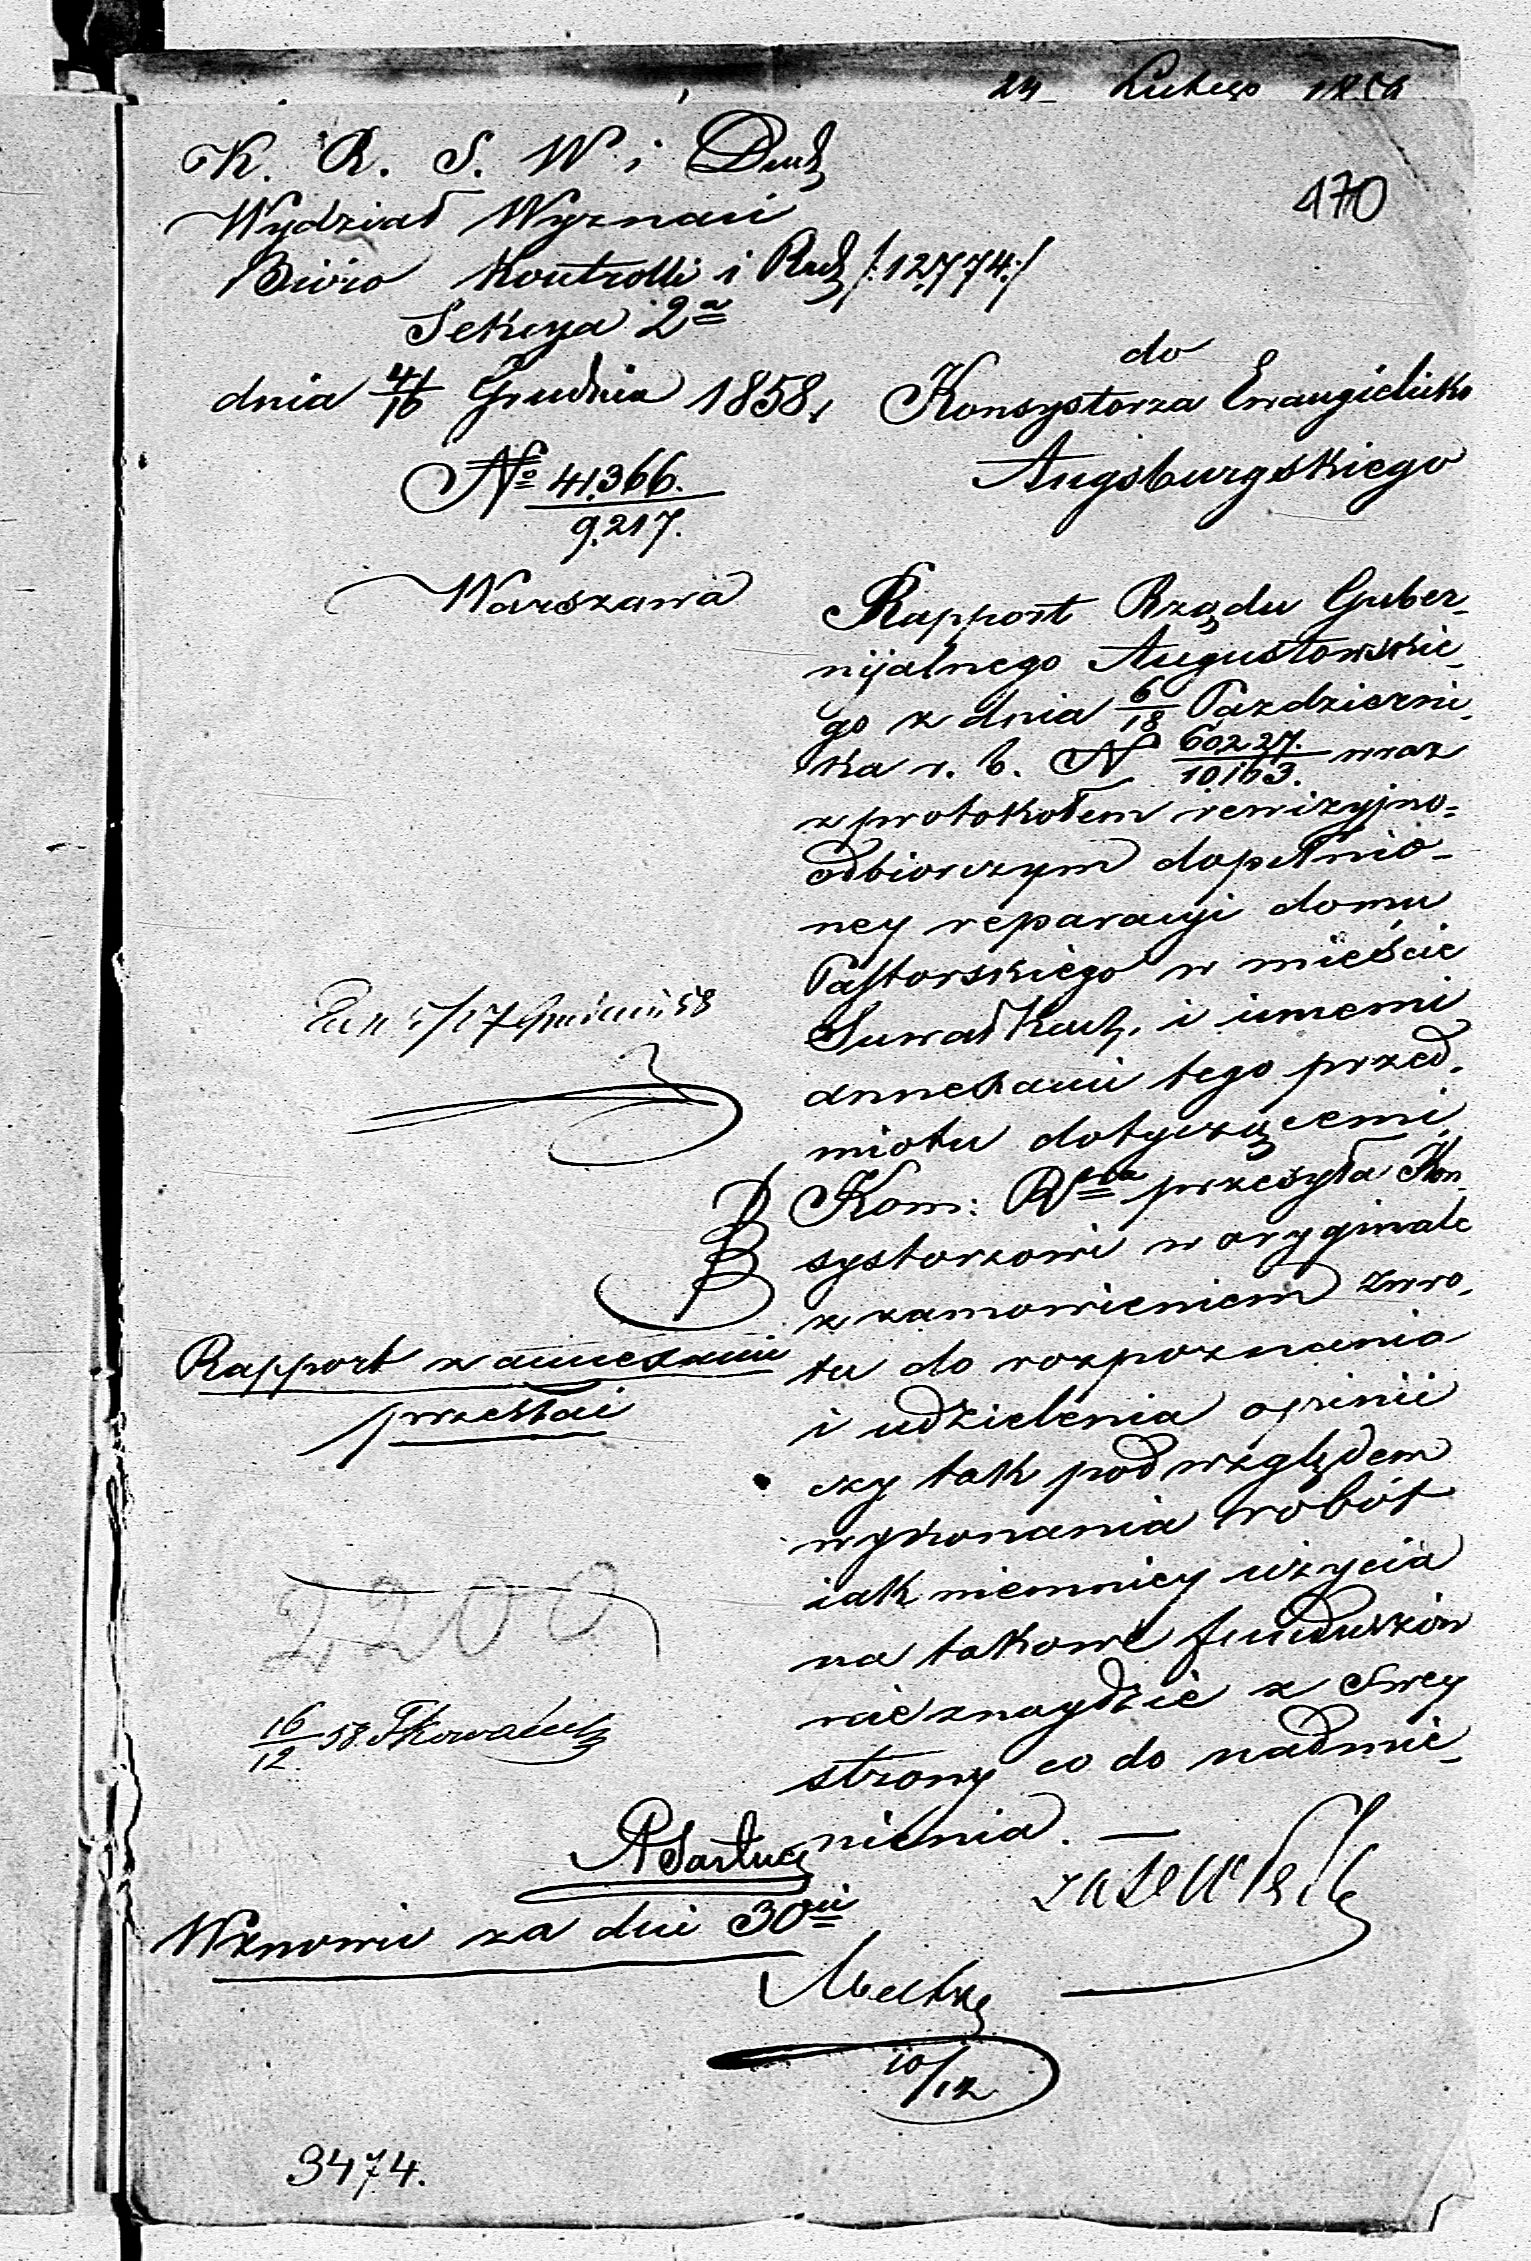 24 Lutego
470
K. R. S. W. i Duch
Wydział Wyznań
Bióro Kontrolli i Rach /:12,774:/
Sekcya 2a
dnia 4/16 Grudnia 1858,
No 41,366.
9,217.
Warszawa
do
Konsystorza Ewangielicko
Augsburgskiego
Rapport Rządu Guber-
nijalnego Augustowskie-
go z dnia 6/18 Pazdzierni-
ka r. b. N 60227./10163. wraz
z protokołem rewizyjno=
odbiorczym dopełnio-
ney reparacyi domu
Pastorskiego w mieście
Suwałkach, i innemi
annexami tego przed-
miotu dotyczącemi,
Kom: Rna przesyła Kon-
systorzowi w oryginale
z zamowieniem zwro-
tu do rozpoznania
i udzielenia opinii
czy tak pod względem
wykonania robót
iak niemniey użycia
na takowe funduszów
nie znaydzie z Swey
strony co do nadmie-
nienia. —
17 58
Rapport z annexami
przesłać
2200
16/12 58
Wznowić za dni 30ci
10/12
3474.